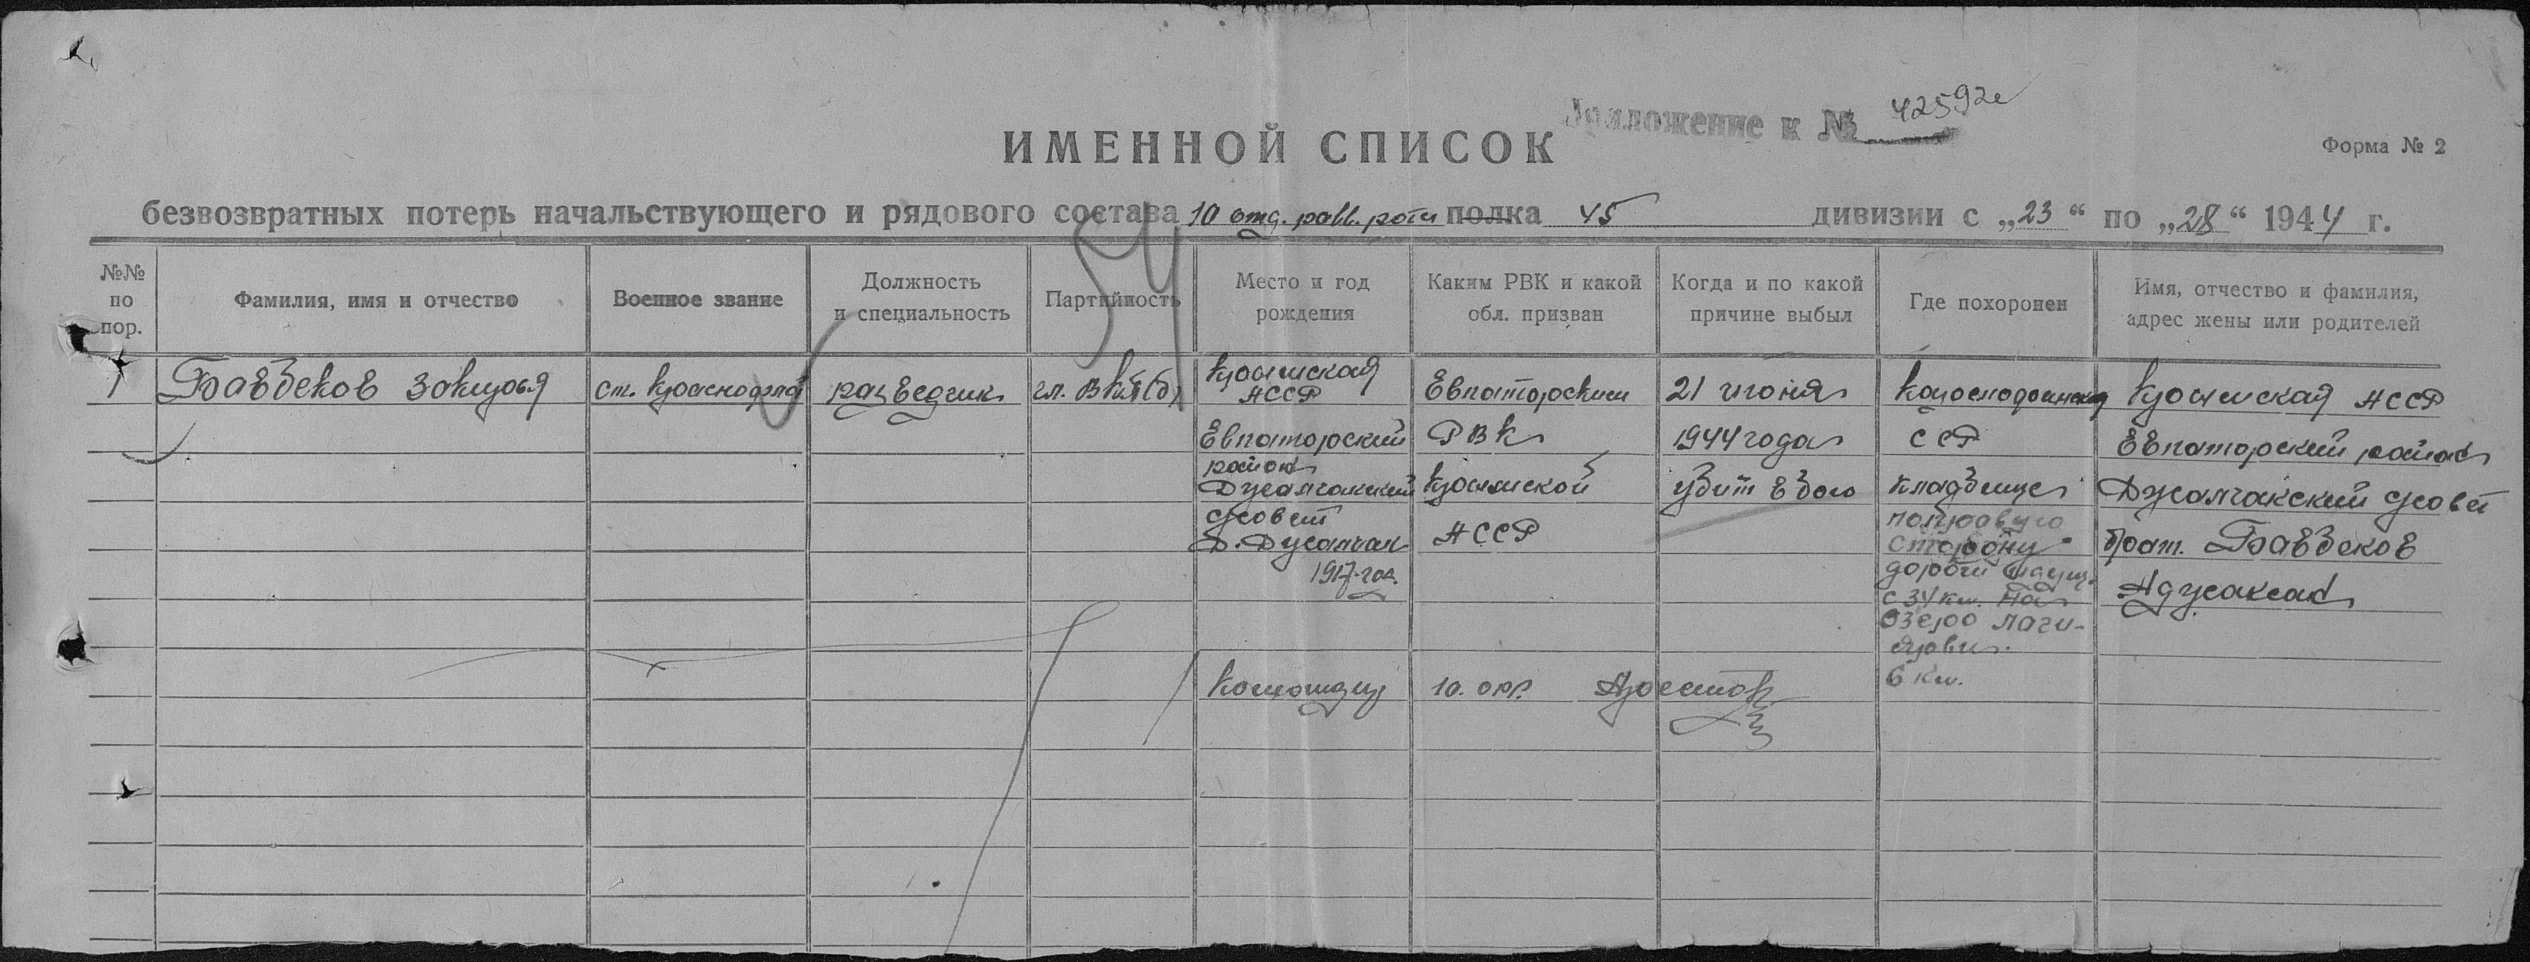 Приложение к № 42592с
ИМЕННОЙ СПИСОК
Форма № 2
безвозвратных потерь начальствующего и рядового состава 10 отд. разв. роты полка 45 дивизии с „23“ по „28“ 1944 г.
54
№№ по пор.
Фамилия, имя и отчество
Военное звание
Должность и специальность
Партийность
Место и год рождения
Каким РВК и какой обл. призван
Когда и по какой причине выбыл
Где похоронен
Имя, отчество и фамилия, адрес жены или родителей
1
Бавбеков Закирья
ст. краснофл
разведчик
чл. ВКП(б)
Крымская
АССР
Евпаторский
район
Джамчакский
совет
Д. Джамчак
1917 год.
Евпаторским
РВК
Крымской
АССР
21 июня
1944 года
убит в бою
ССР
кладбище
по правую
сторону
дороги
с 34 км. на
озеро
6 км.
Крымская АССР
Евпаторский район
Джамчакский совет
брат. Бавбеков
Командир 10. орр.